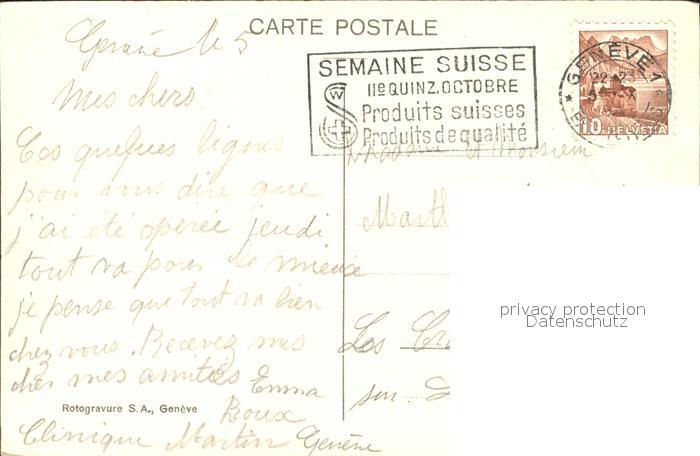 CARTE POSTALE
Genève le 5
SEMAINE SUISSE
IIe QUINZ. OCTOBRE
Produits suisses
Produits de qualité
GENÈVE 1
10 HELVETIA
Mes chers
Ces quelques lignes
pour vous dire que
j'ai été opérée jeudi
tout va pour le mieux
je pense que tout va bien
chez vous. Recevez mes
chers mes amitiés Emma
Roux
Clinique Martin Genève
Madame et Monsieur
Les
sur
privacy protection
Datenschutz
Rotogravure S.A., Genève